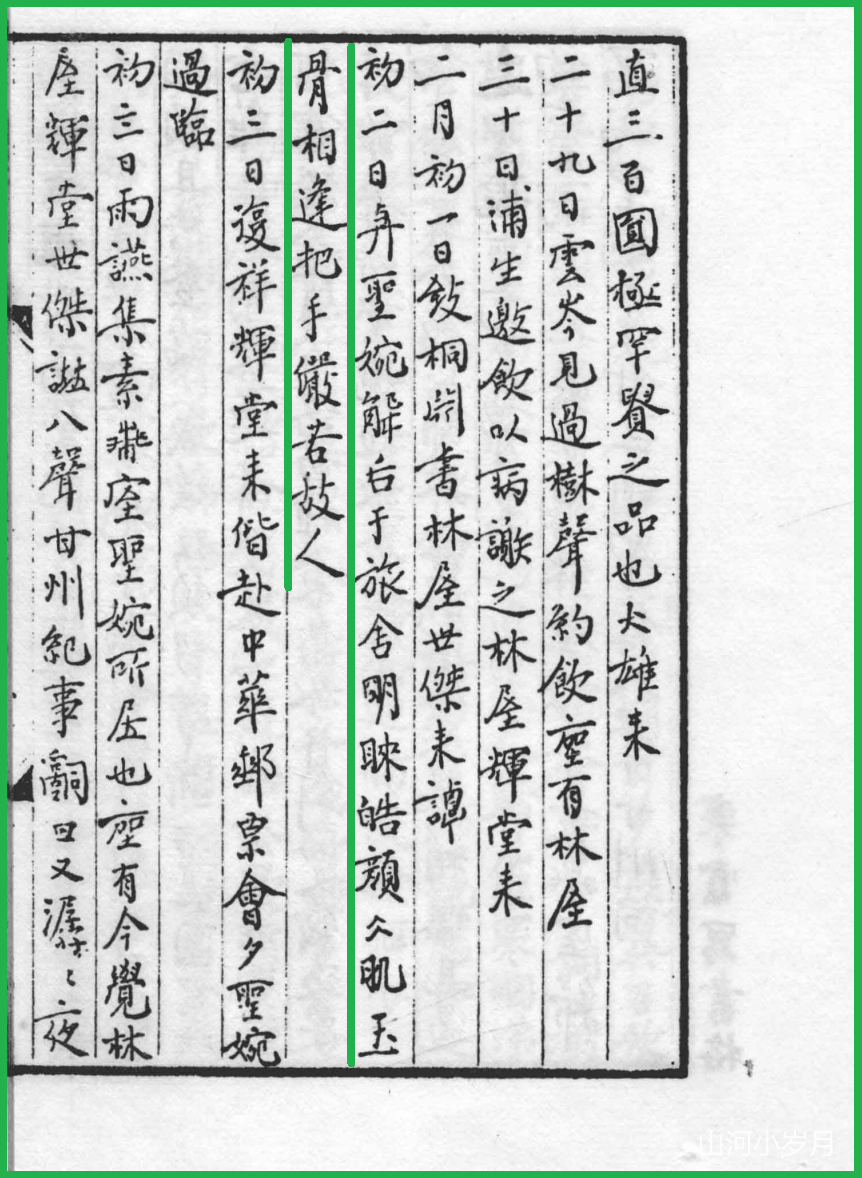 直三百圓極罕覯之品也大雄来
二十九日雲岑見過樹聲約飲座有林屋
三十日浦生邀飲以病謝之林屋輝堂来
二月初一日發桐削書林屋世傑来譚
初二日弁聖婉解后于旅舍明眸皓顔仌肌玉
骨相逢把手儼若故人
初三日復祥輝堂来偕赴中華郵票會夕聖婉
過臨
初三日雨讌集素 室聖婉所居也座有今覺林
屋輝堂世傑 八聲甘州紀事詞曰又 夜
山河小岁月